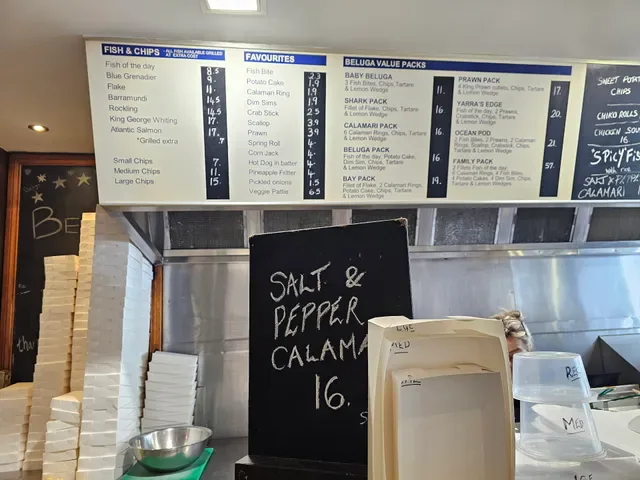 FISH & CHIPS - ALL FISH AVAILABLE GRILLED AT EXTRA COST
Fish of the day 8.5
Blue Grenadier 9.
Flake 11.
Barramundi 14.5
Rockling 14.5
King George Whiting 17.
Atlantic Salmon 17.
*Grilled extra .7
Small Chips 7.
Medium Chips 11.
Large Chips 15.
FAVOURITES
Fish Bite 2.3
Potato Cake 1.9
Calamari Ring 1.9
Dim Sims 1.9
Crab Stick 2.5
Scallop 3.9
Prawn 3.9
Spring Roll 4.
Corn Jack 4.
Hot Dog in batter 4.
Pineapple Fritter 4.
Pickled onions 1.5
Veggie Pattie 6.5
BELUGA VALUE PACKS
BABY BELUGA 11.
3 Fish Bites, Chips, Tartare
& Lemon Wedge
SHARK PACK 16.
Fillet of Flake, Chips, Tartare
& Lemon Wedge
CALAMARI PACK 16.
6 Calamari Rings, Chips, Tartare
& Lemon Wedge
BELUGA PACK 16.
Fish of the day, Potato Cake,
Dim Sim, Chips, Tartare
& Lemon Wedge
BAY PACK 19.
Fillet of Flake, 2 Calamari Rings,
Potato Cake, Chips, Tartare
& Lemon Wedge
PRAWN PACK 17.
4 King Prawn cutlets, Chips, Tartare
& Lemon Wedge
YARRA'S EDGE 20.
Fish of the day, 2 Prawns,
Crabstick, Chips, Tartare
& Lemon Wedge
OCEAN POD 21.
2 Fish Bites, 2 Prawns, 2 Calamari
Rings, Scallop, Crabstick, Chips,
Tartare & Lemon Wedge
FAMILY PACK 57.
Calamari Rings, 4 Fish Bites,
4 Potato Cakes, 4 Dim Sims, Chips,
Tartare & Lemon Wedges
SWEET POTATO
CHIPS
CHIKO ROLLS
CHICKEN SOUV
16
SPICY FISH
SALT & PEPPER
CALAMARI
BE
SALT &
PEPPER
CALAMA
16.
S
LGE
MED
REG
MED
LGE